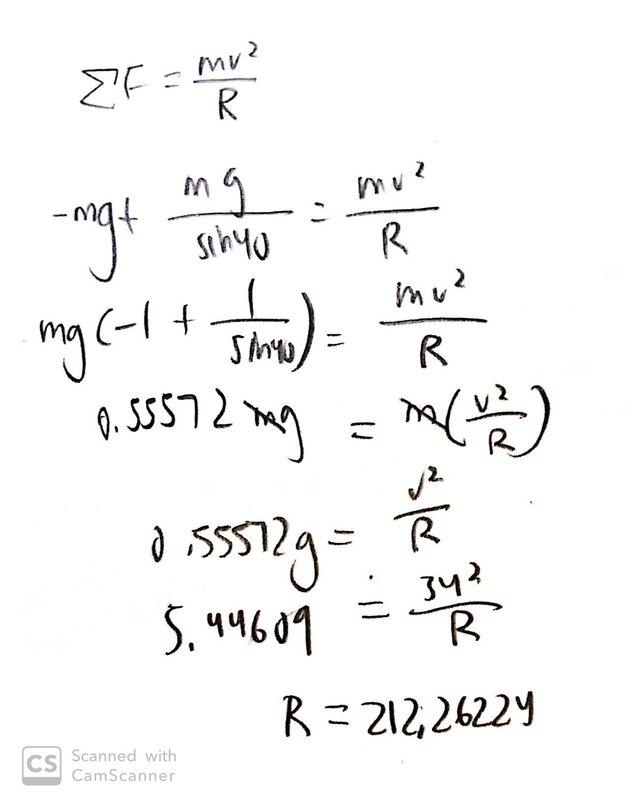 ΣF = mv²/R
-mg+ mg/sin40 = mv²/R
mg(-1 + 1/sin40) = mv²/R
0.55572 mg = m(v²/R)
0.55572g = v²/R
5.44609 = 34²/R
R = 212.26224
CS Scanned with
CamScanner